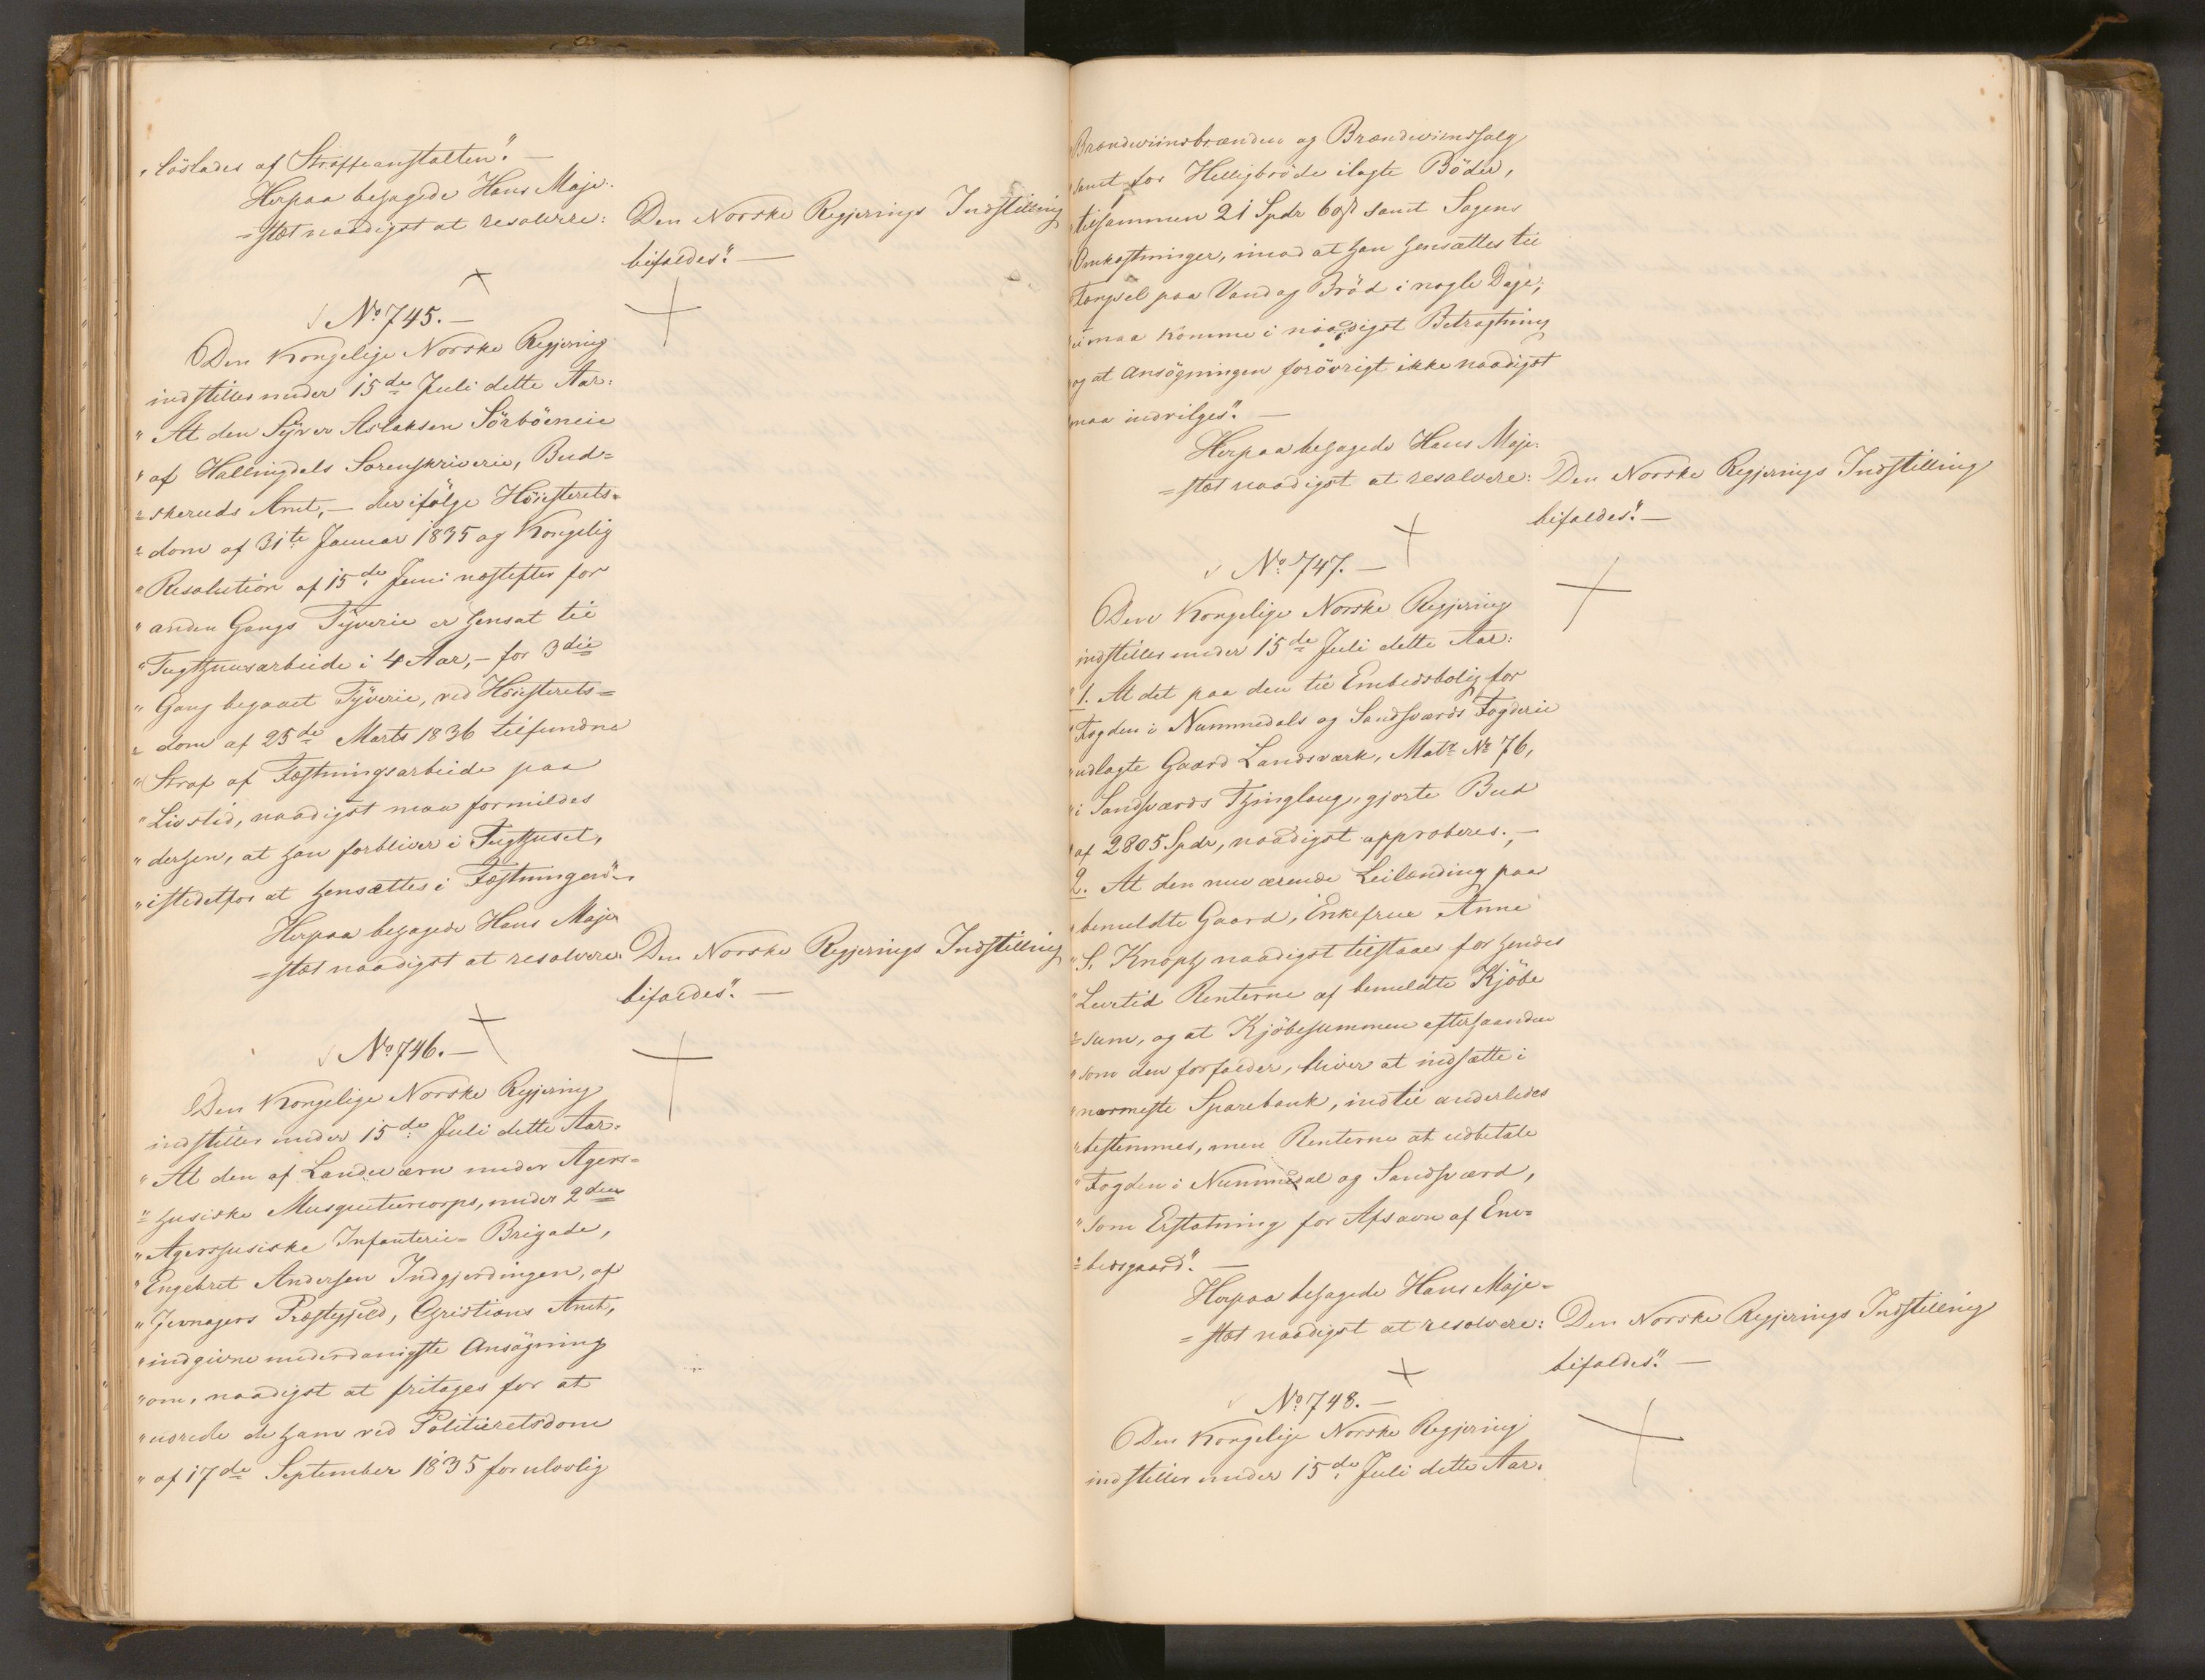 "löslades af Straffeanstalten". —
Herpaa behagede Hans Maje-
=stæt naadigst at resolvere: Den Norske Regjerings Indstilling
bifaldes". —
No 745. —
Den Kongelige Norske Regjering
indstiller under 15de Juli dette Aar:
"At den Syver Aslaksen Sörböeneie
"af Hallingdals Sorenskriverie, Bud=
"=skeruds Amt, — der ifölge Höiesterets=
"=dom af 31te Januar 1835 og Kongelig
"Resolution af 15de Juni næstefter for
"anden Gangs Tyverie er hensat til
"Tugthuusarbeide i 4 Aar, — for 3die
"Gang begaaet Tyverie, ved Höiesterets=
"=dom af 25de Marts 1836 tilfundne
"Straf af Fæstningsarbeide paa
"Livstid, naadigst maa formildes
"derhen, at han forbliver i Tugthuset,
"istedetfor at hensættes i Fæstningen". —
Herpaa behagede Hans Maje-
=stæt naadigst at resolvere: Den Norske Regjerings Indstilling
bifaldes". —
No 746. —
Den Kongelige Norske Regjering
indstiller under 15de Juli dette Aar:
"At den af Landeværn under Agers=
"=husiske Musqueteercorps, under 2den
"Agershusiske Infanterie=Brigade,
"Engebret Andersen Indgjerdingen, af
"Jevnagers Præstegjeld, Christians Amt,
"indgivne underdanigste Ansögning
"om, naadigst at fritages for at
"udrede de ham ved Politieretsdom
"af 17de September 1835 for ulovlig
"Brændeviinsbrænden og Brændeviinssalg
"samt for Helligbröde ilagte Böder,
"tilsammen 21 Spdr 60 ß samt Sagens
"Omkostninger, imod at han hensættes til
"Fængsel paa Vand og Bröd i nogle Dage,
"ei maa komme i naadigst Betragtning
"og at Ansögningen forövrigt ikke naadigst
"maa indvilges". —
Herpaa behagede Hans Maje-
=stæt naadigst at resolvere: Den Norske Regjerings Indstilling
bifaldes". —
No 747. —
Den Kongelige Norske Regjering
indstiller under 15de Juli dette Aar:
"1. At det paa den til Embedsbolig for
"Fogden i Nummedals og Sandsværds Fogderie
"udlagte Gaard Landsværk, Matr No 76,
"i Sandsværds Thinglaug, gjorte Bud
"af 2805 Spdr, naadigst approberes; —
2. At den nuværende Leilænding paa
"bemeldte Gaard, Enkefrue Anne
"S. Knoph naadigst tilstaaes for hendes
"Levetid Renterne af bemeldte Kjöbe
"=sum, og at Kjöbesummen efterhaanden
"som den forfalder, bliver at indsætte i
"nærmeste Sparebank, indtil anderledes
"bestemmes, men Renterne at udbetale
"Fogden i Nummedal og Sandsværd,
"som Erstatning for Afsavn af Em=
"=bedsgaard". —
Herpaa behagede Hans Maje-
=stæt naadigst at resolvere: Den Norske Regjerings Indstilling
bifaldes". —
No 748. —
Den Kongelige Norske Regjering
indstiller under 15de Juli dette Aar: